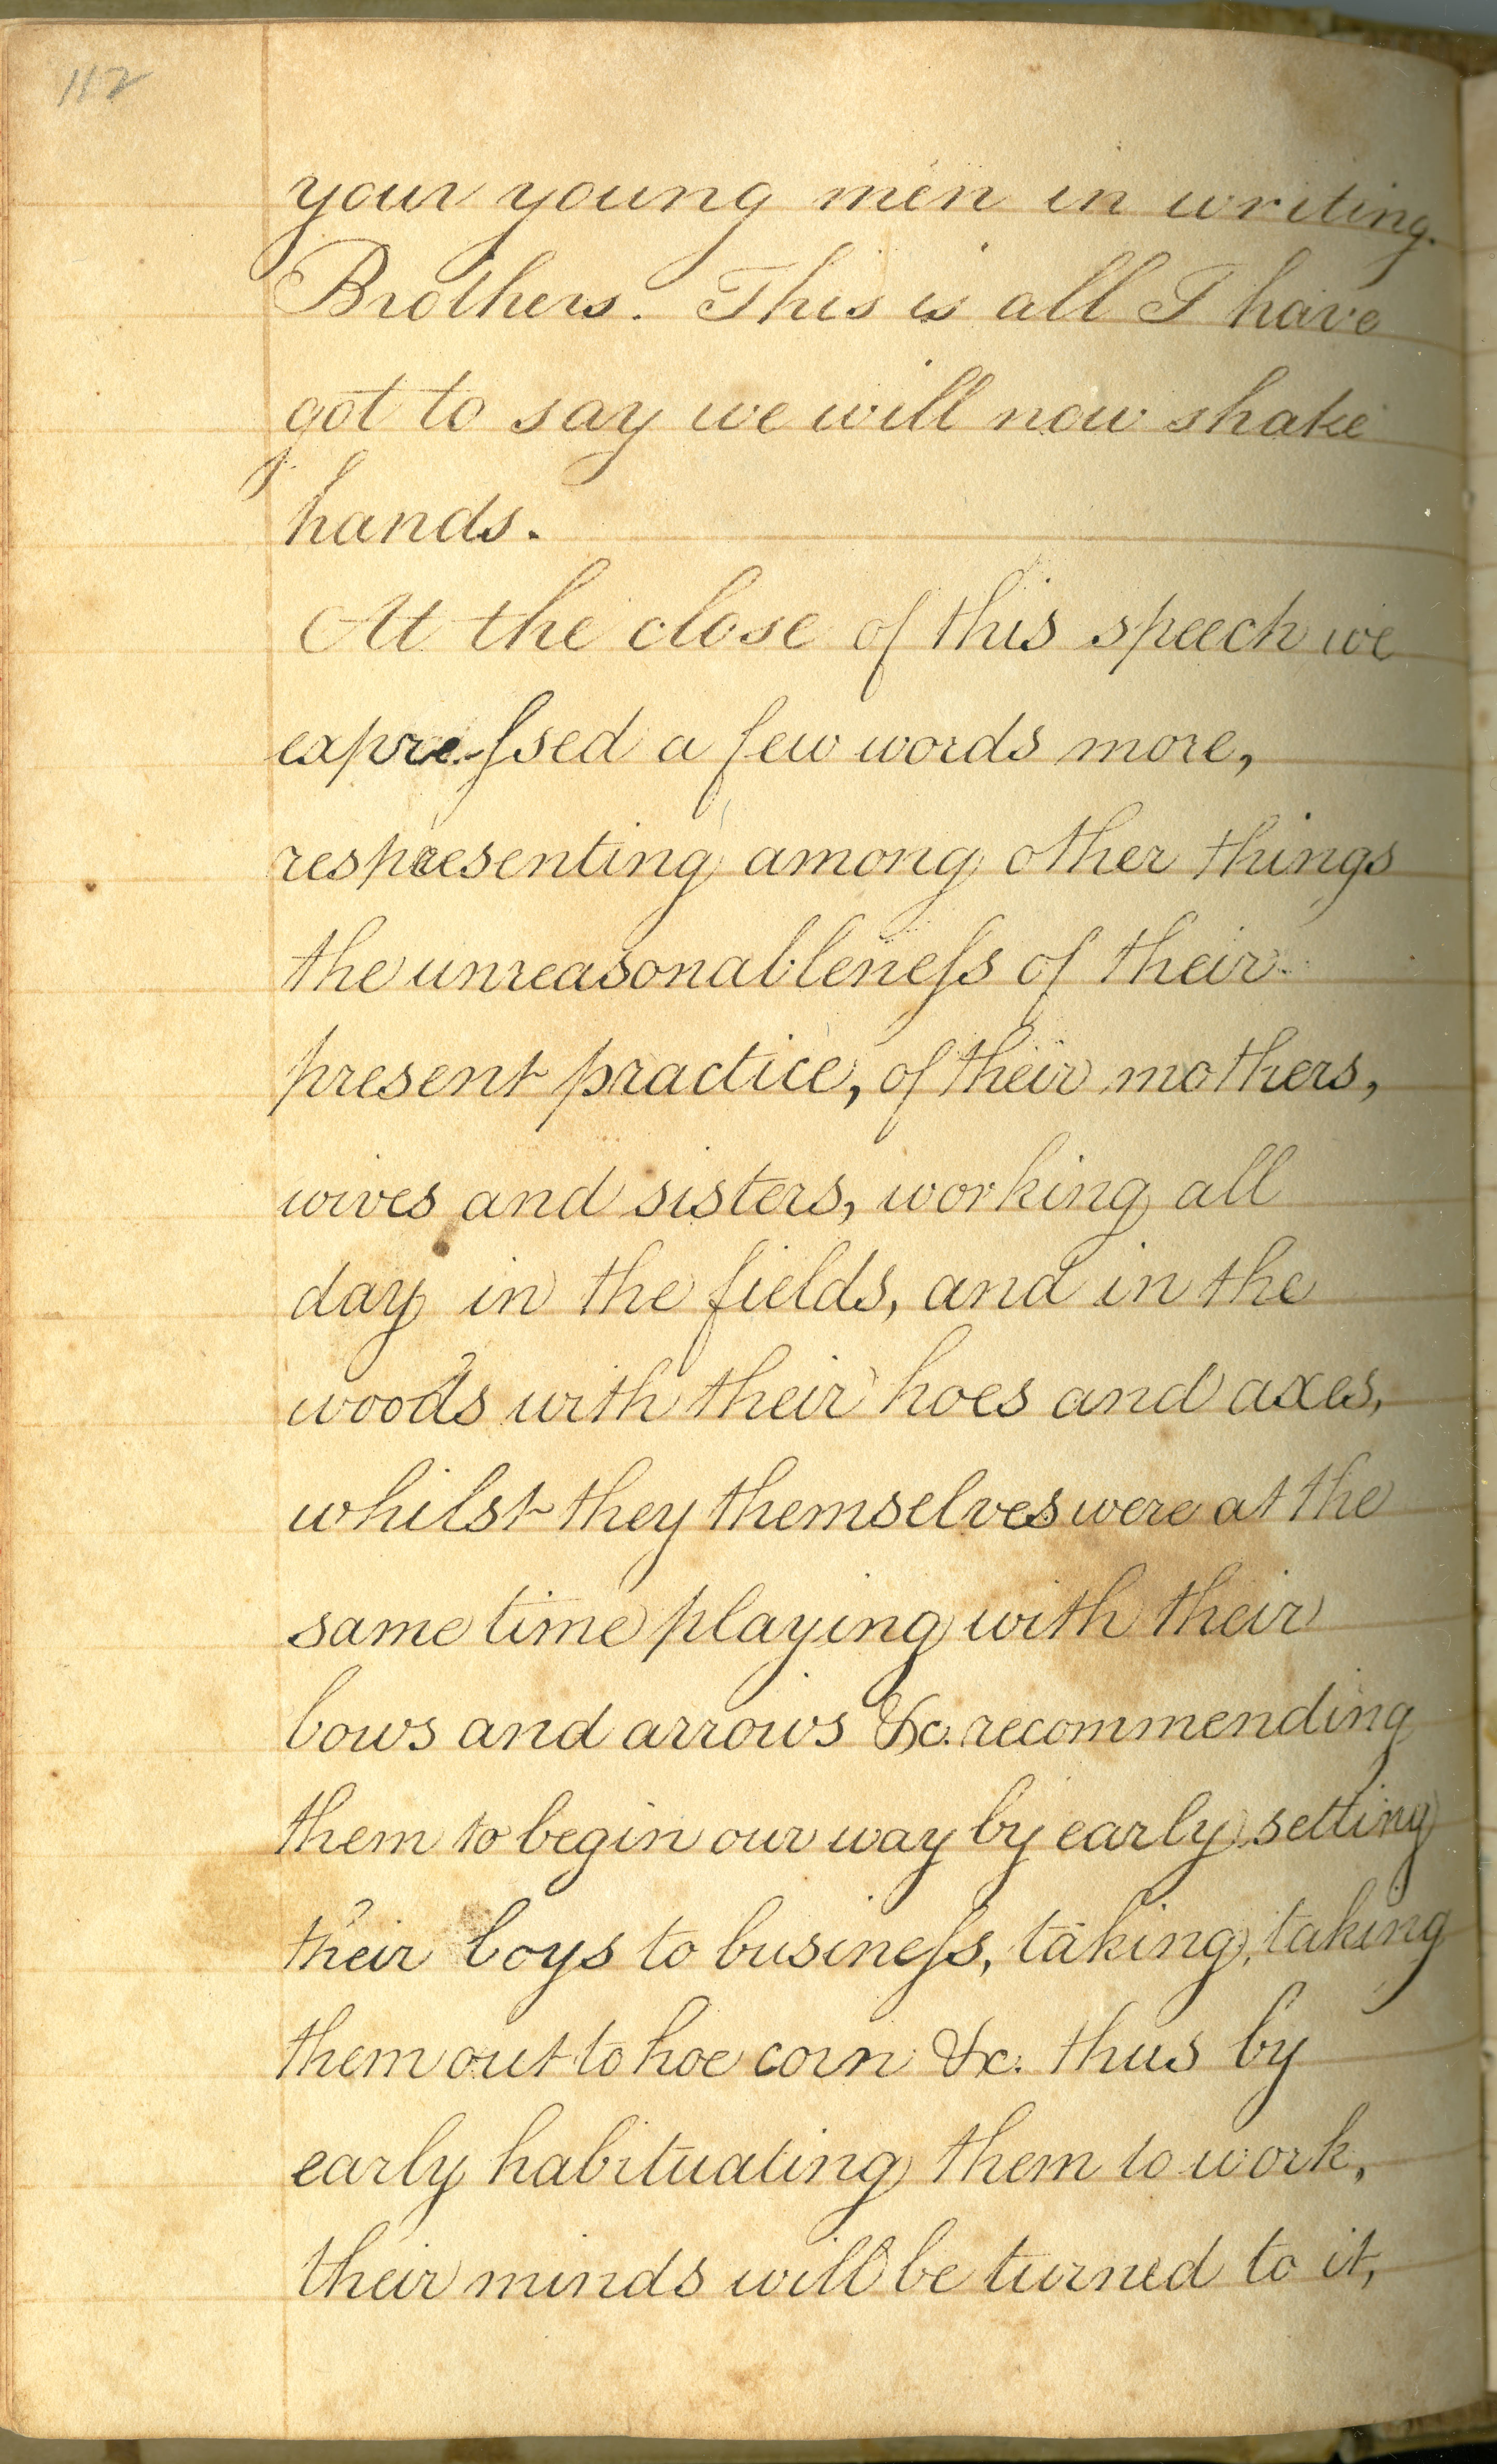 112
your young men in writing.
Brothers. This is all I have
got to say we will now shake
hands.
At the close of this speech we
expreſsed a few words more,
respresenting among other things
the unreasonableneſs of their
present practice, of their mothers,
wives and sisters, working all
day in the fields, and in the
woods with their hoes and axes,
whilst they themselves were at the
same time playing with their
bows and arrows &c. recommending
them to begin our way by early setting
their boys to busineſs, taking, taking
them out to hoe corn &c. thus by
early habituating them to work,
their minds will be turned to it,